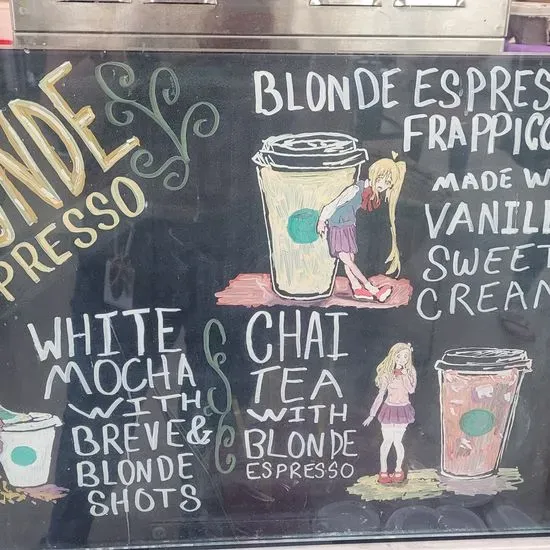 NDE
PRESSO
BLONDE ESPRES
FRAPPICC
MADE W
VANILL
SWEET
CREAM
WHITE
MOCHA
WITH
BREVE &
BLONDE
SHOTS
CHAI
TEA
WITH
BLONDE
ESPRESSO